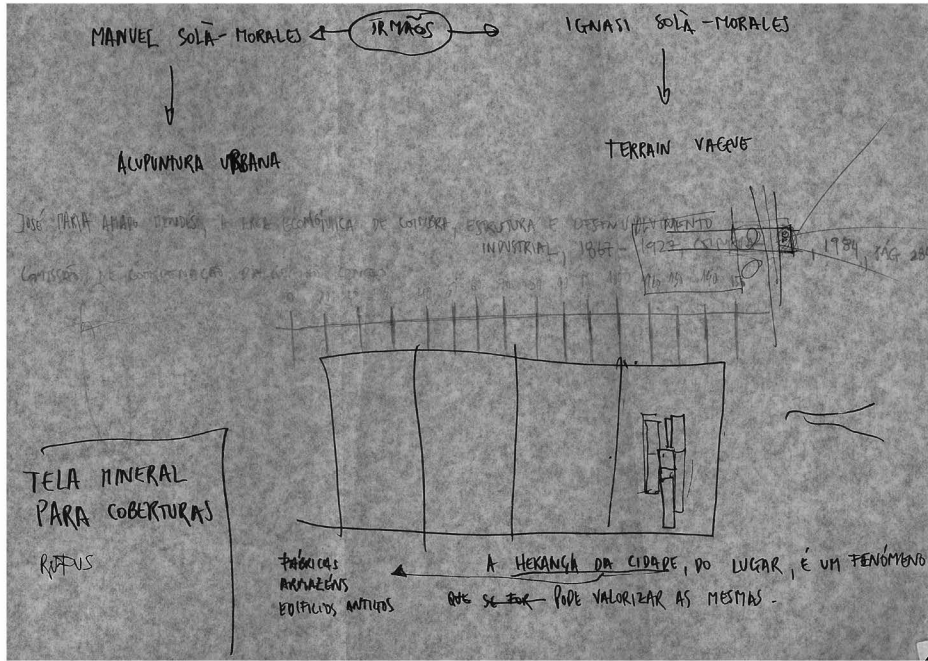 MANUEL SOLÀ-MORALES
IRMÃOS
IGNASI SOLÀ-MORALES
ACUPUNTURA URBANA
TERRAIN VAGUE
JOSÉ MARIA AMADO MENDES, A ECONÓMICA DE COIMBRA, ESTRUTURA E DESENVOLVIMENTO
INDUSTRIAL, 1867 - 1927 , 1984, PÁG 28
TELA MINERAL
PARA COBERTURAS
RUFUS
FÁBRICAS
ARMAZÉNS
EDIFICIOS ANTIGOS
A HERANÇA DA CIDADE, DO LUGAR, É UM FENÓMENO
QUE PODE VALORIZAR AS MESMAS.